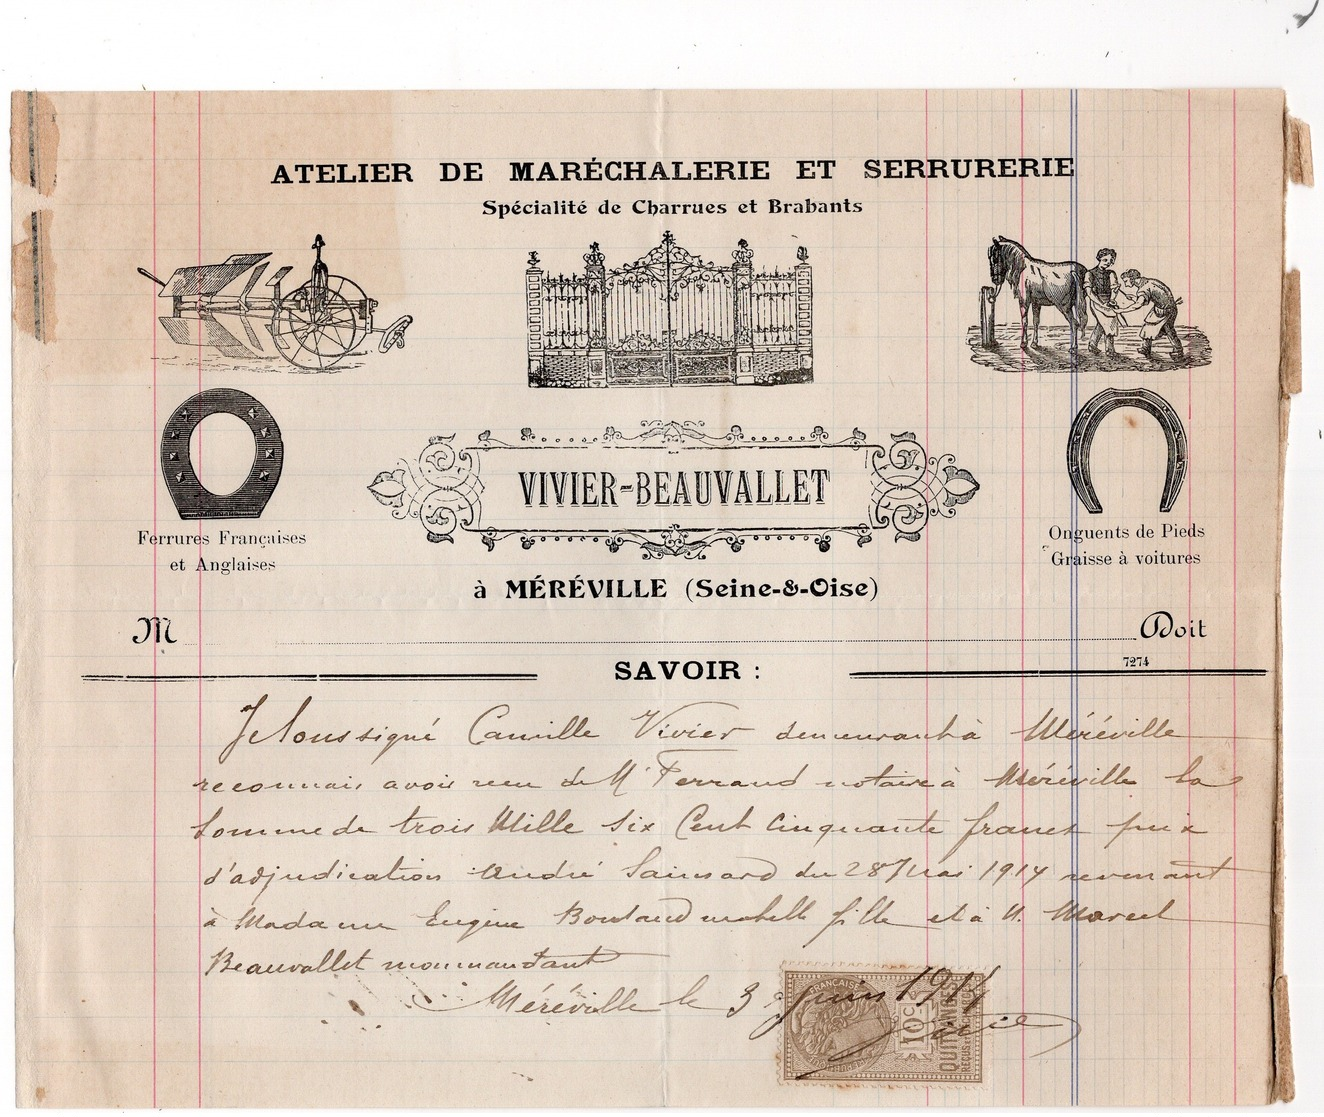 ATELIER DE MARÉCHALERIE ET SERRURERIE
Spécialité de Charrues et Brabants
VIVIER-BEAUVALLET
Ferrures Françaises
et Anglaises
Onguents de Pieds
Graisse à voitures
à MÉRÉVILLE (Seine-&-Oise)
M Doit
7274
SAVOIR :
Je Soussigné Camille Vivier demeurant à Méréville
reconnais avoir reçu de Me Ferrand notaire à Méréville la
Somme de trois Mille Six Cent Cinquante francs prix
d'adjudication André Sainsard du 28 Mai 1914 revenant
à Madame Eugène fille et à M. Marcel
Beauvallet mon mandant
Méréville le 3 Juin 1914
FRANÇAISE
10c
QUITTANCES
REÇUS ET DÉCHARGES